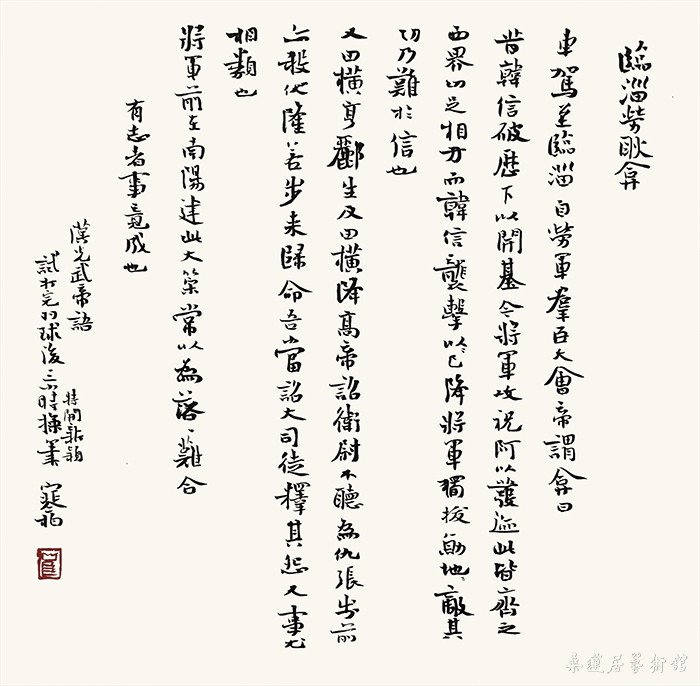 臨淄勞耿弇
車駕至臨淄自勞軍羣臣大會帝謂弇曰
昔韓信破歷下以開基今將軍攻祝阿以發迹此皆齊之
西界功足相方而韓信襲擊以已降將軍獨拔勍地敵其
功乃難於信也
又田橫亨酈生及田橫降高帝詔衛尉不聽為仇張步前
亦殺伏隆若步來歸命吾當詔大司徒釋其怨又事尤
相類也
將軍前在南陽建此大策常以為落、難合
有志者事竟成也
漢光武帝語
試打完羽球後三小時操筆
時間
桑蓮居藝術館